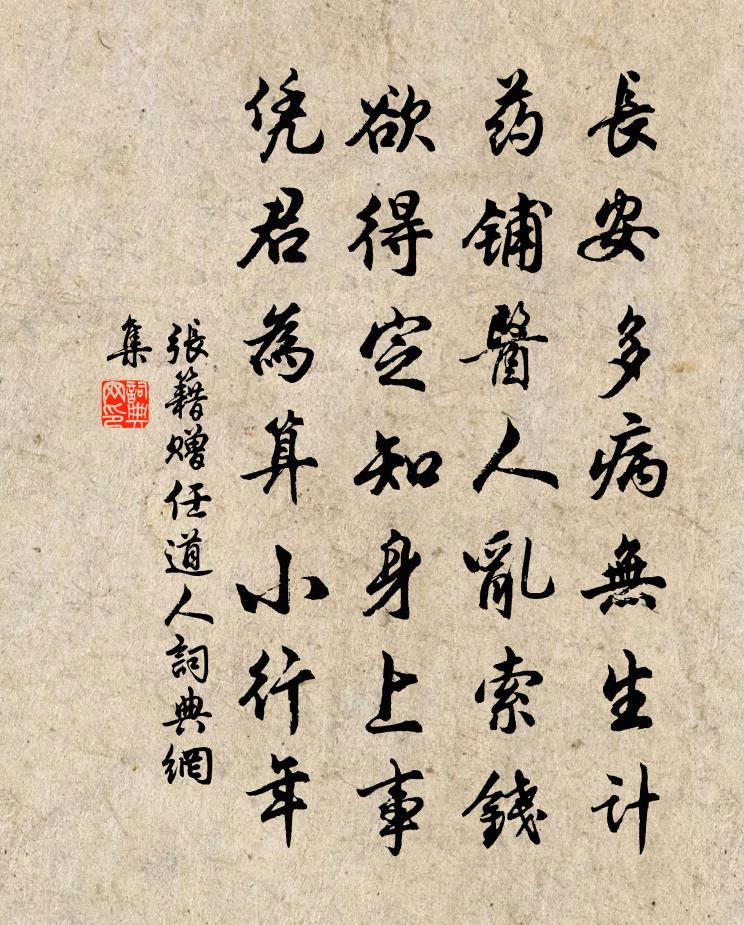 長安多病無生計
药铺醫人亂索錢
欲得定知身上事
凭君為算小行年
張籍赠任道人詞典網
集
詞典網印